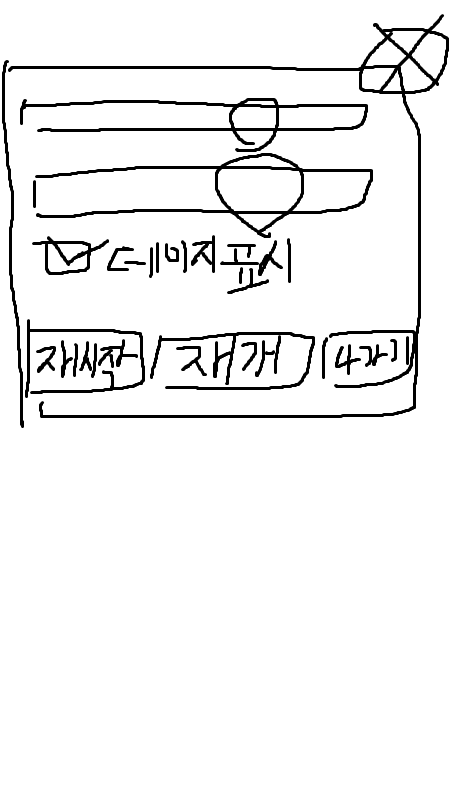 데미지표시
재시작 재개 나가기